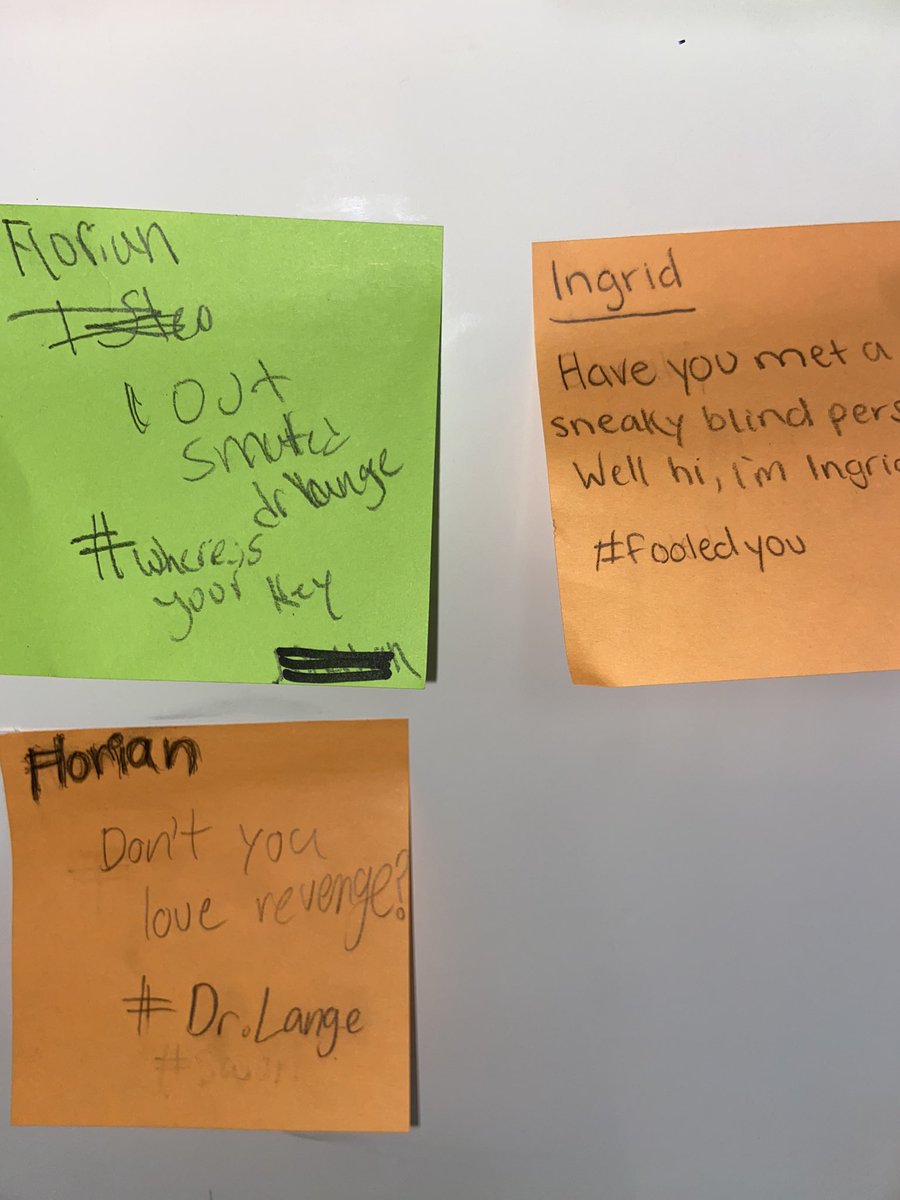 Florian
I
I out
smarted
dr Lange
#whereis
your key
Ingrid
Have you met a
sneaky blind pers
Well hi, i'm Ingrid
#fooledyou
Florian
Don't you
love revenge?
#Dr.Lange